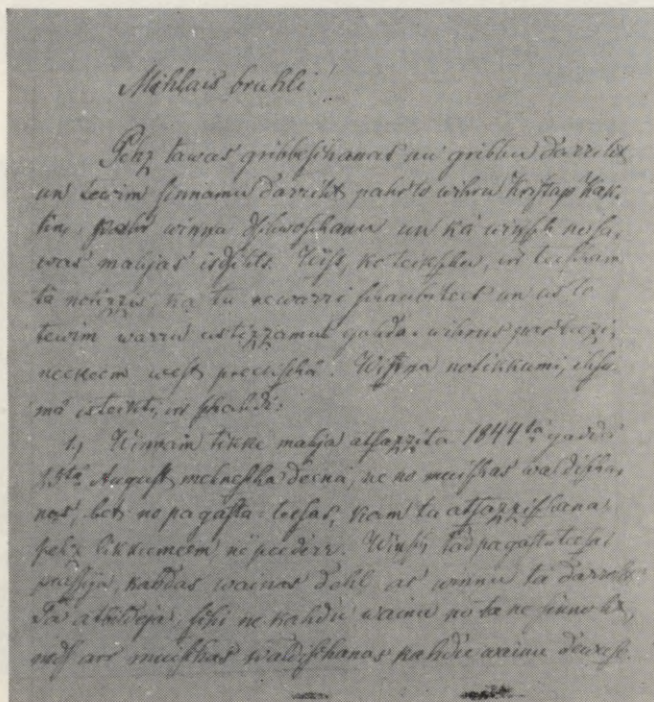 Mihlais bruhli!
Pehz tawas gribbeschanas nu gribbu darriht
un tewim sinnamu darriht pahr to wihru Kristap Kak-
ting, winnu dsihwoschanu un kà winsch no sa-
was mahjas isdsihts. Wiss, ko teikschu, ir teescham
tà notizzis, ka tu newarri schaubitees un us to
tewim warru ustizzamus goħda-wihrus par leezi-
neekeem west preekschâ. Wissi na notikkumi, ihsu-
mâ isteikti, ir schahdi:
1, Winnam tikke mahja atsazzita 1844tâ gaddâ
13tâ August mehnescha deenâ, ne no muischas waldischa-
nas, bet no pagasta-teesas, kam ta atsazzischana
pehz likkumeem ne peederr. Winsch tad pagasta teesai
prassija, kahdas wainas dehl as winnu tà darroht.
Ta atbildeja, sihi ne kahdu wainu no ta ne sinnoht,
nedf arr muischas waldischanas kahdu wainu dewuse.